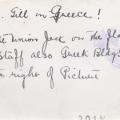 . Still in Greece!
Union Jack on the Fla
Staff also Greek Bldgs
on right of Picture